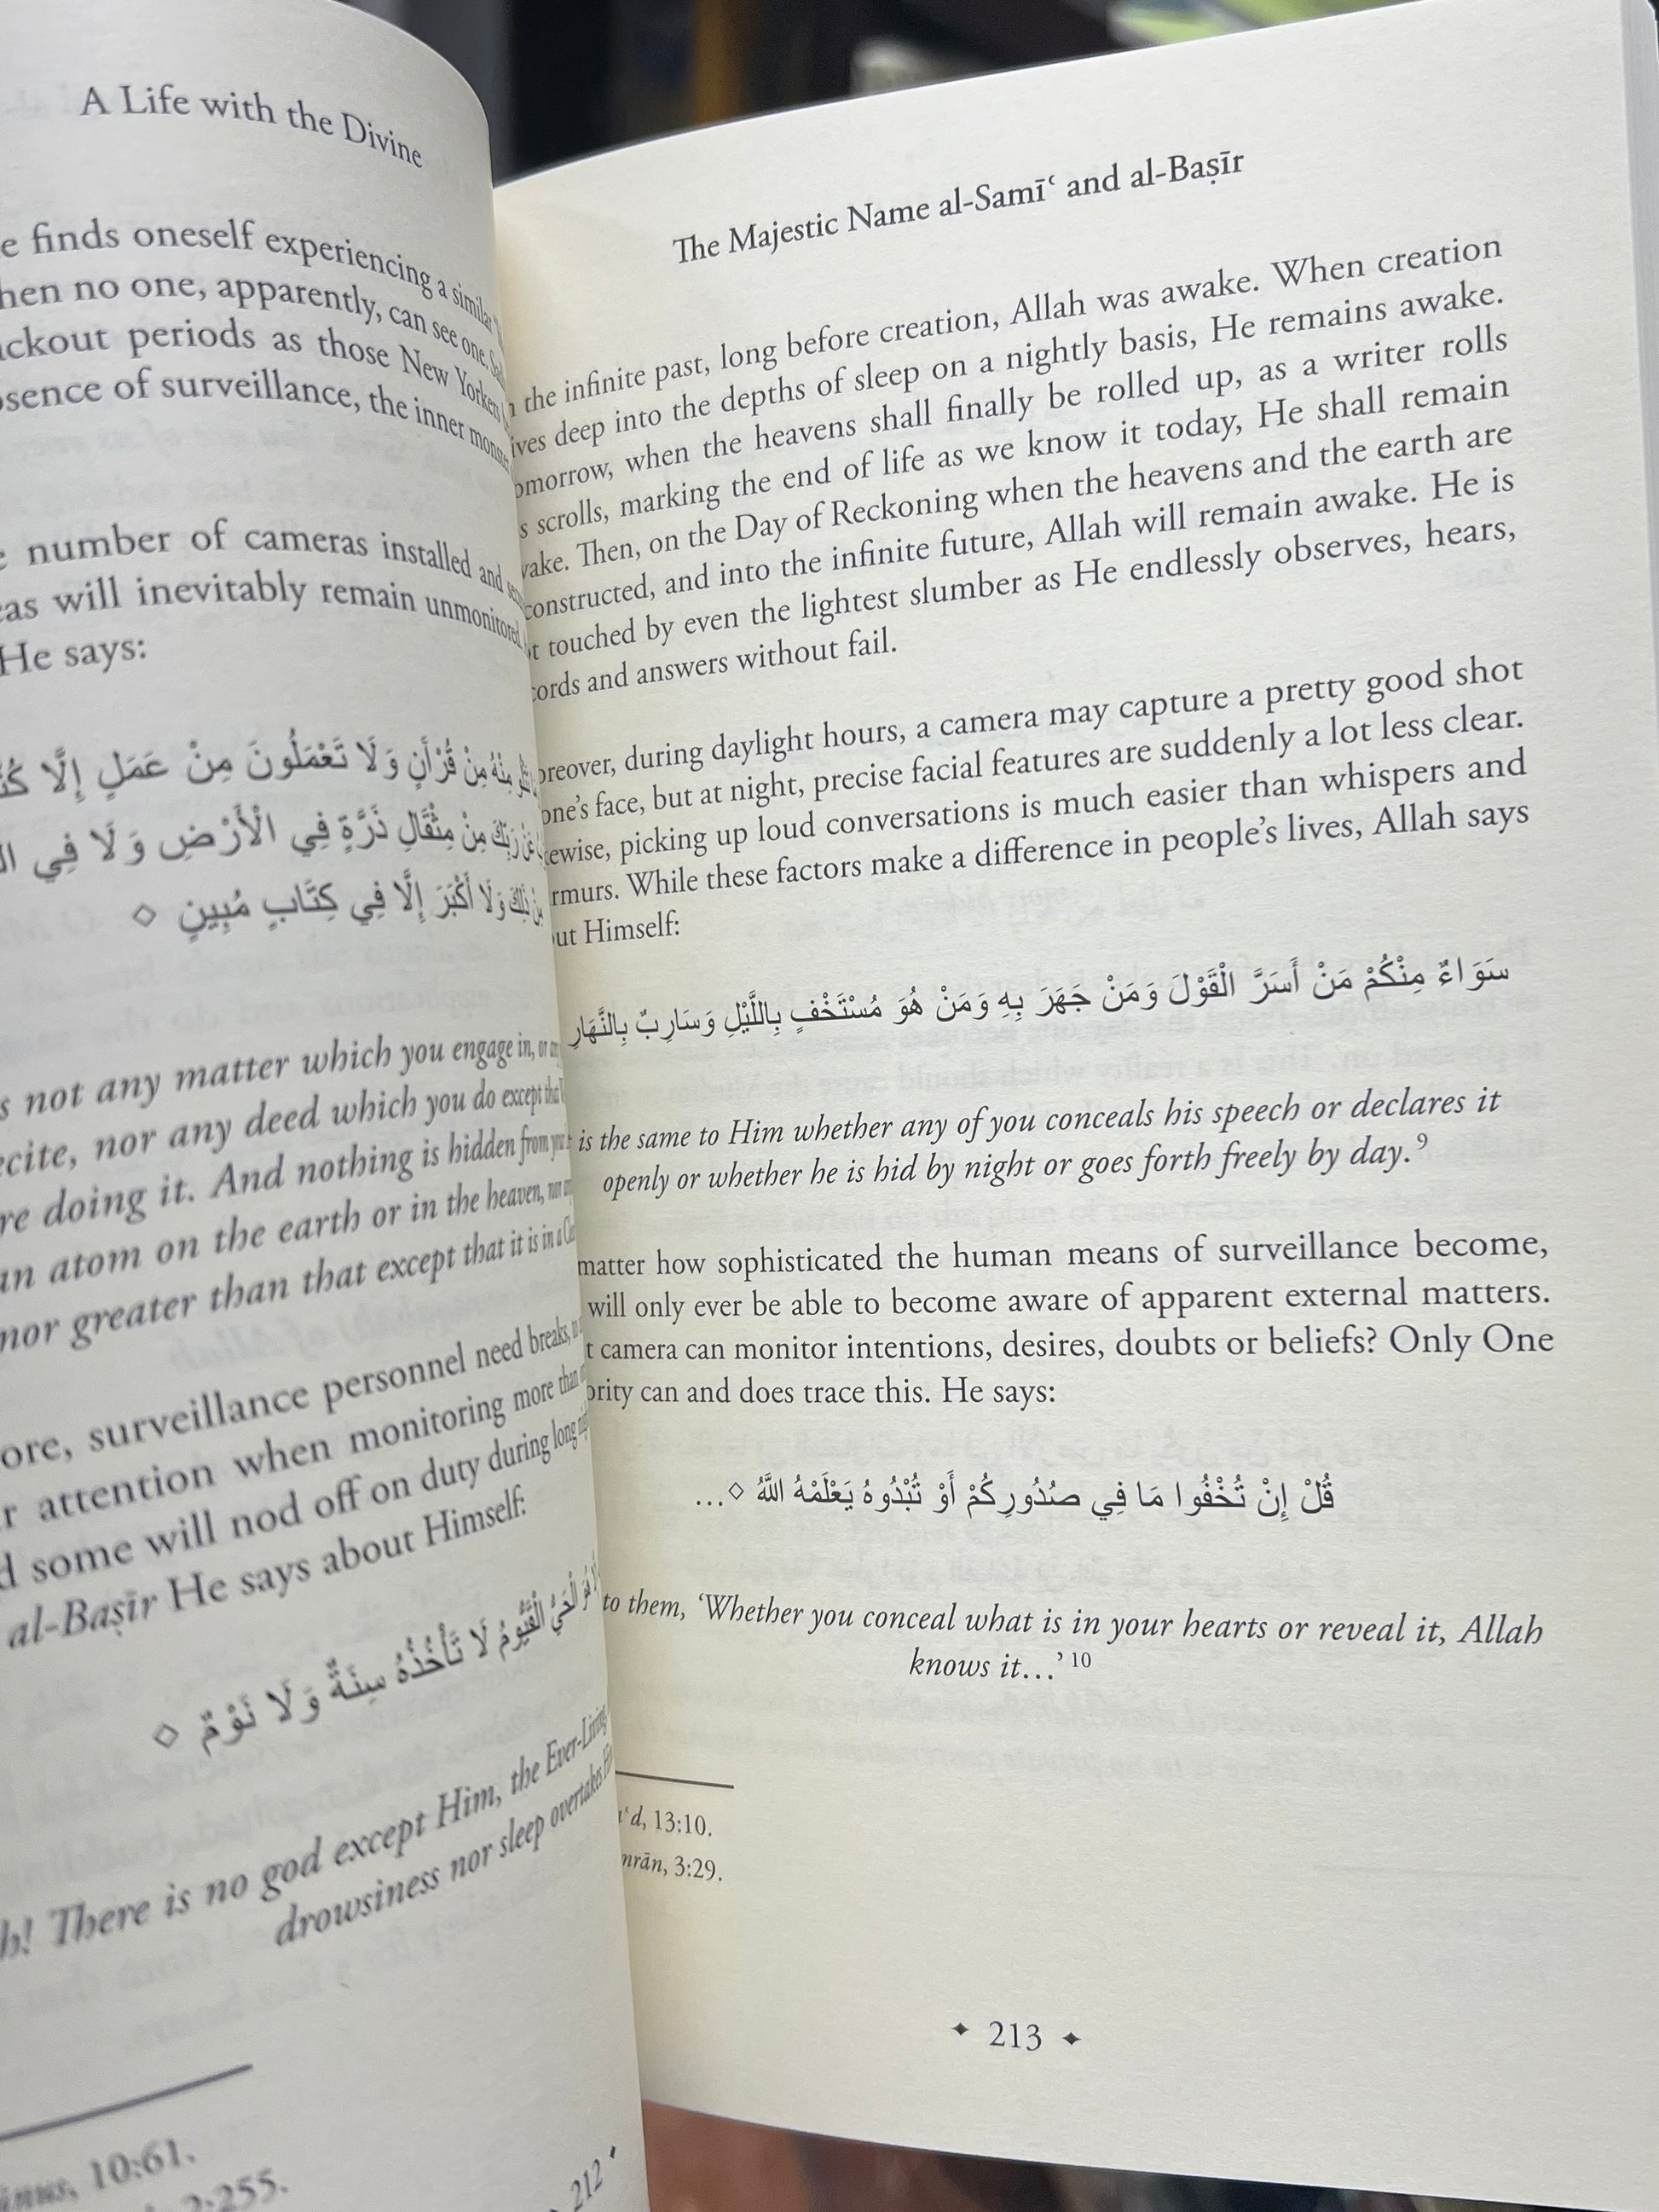 A Life with the Divine
finds oneself experiencing a similar
no one, apparently, can see one.
periods as those New Yorkers
of surveillance, the inner monster
number of cameras installed and
will inevitably remain unmonitored
He says:
مِنْهُ مِنْ قُرْآنٍ وَلَا تَعْمَلُونَ مِنْ عَمَلٍ إِلَّا
رَبِّكَ مِنْ مِثْقَالِ ذَرَّةٍ فِي الْأَرْضِ وَلَا فِي
ذَلِكَ وَلَا أَكْبَرَ إِلَّا فِي كِتَابٍ مُبِينٍ ◇
not any matter which you engage in, or
nor any deed which you do except that
doing it. And nothing is hidden from your
atom on the earth or in the heaven, nor
nor greater than that except that it is in a
surveillance personnel need breaks,
attention when monitoring more than
some will nod off on duty during long
al-Baṣīr He says about Himself:
هُوَ الْحَيُّ الْقَيُّومُ لَا تَأْخُذُهُ سِنَةٌ وَلَا نَوْمٌ ◇
There is no god except Him, the Ever-Living,
drowsiness nor sleep overtakes
10:61.
2:255.
212
The Majestic Name al-Samīʿ and al-Baṣīr
the infinite past, long before creation, Allah was awake. When creation
deep into the depths of sleep on a nightly basis, He remains awake.
when the heavens shall finally be rolled up, as a writer rolls
scrolls, marking the end of life as we know it today, He shall remain
Then, on the Day of Reckoning when the heavens and the earth are
and into the infinite future, Allah will remain awake. He is
touched by even the lightest slumber as He endlessly observes, hears,
and answers without fail.
during daylight hours, a camera may capture a pretty good shot
one’s face, but at night, precise facial features are suddenly a lot less clear.
picking up loud conversations is much easier than whispers and
While these factors make a difference in people’s lives, Allah says
Himself:
سَوَاءٌ مِنْكُمْ مَنْ أَسَرَّ الْقَوْلَ وَمَنْ جَهَرَ بِهِ وَمَنْ هُوَ مُسْتَخْفٍ بِاللَّيْلِ وَسَارِبٌ بِالنَّهَارِ
is the same to Him whether any of you conceals his speech or declares it
openly or whether he is hid by night or goes forth freely by day.⁹
matter how sophisticated the human means of surveillance become,
will only ever be able to become aware of apparent external matters.
camera can monitor intentions, desires, doubts or beliefs? Only One
can and does trace this. He says:
قُلْ إِنْ تُخْفُوا مَا فِي صُدُورِكُمْ أَوْ تُبْدُوهُ يَعْلَمْهُ اللَّهُ ◇...
to them, ‘Whether you conceal what is in your hearts or reveal it, Allah
knows it…’ ¹⁰
13:10.
3:29.
213